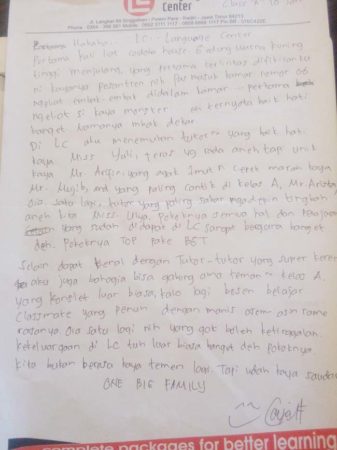 Center
Class A 10 Jan
Jl. Langkat 88 Singgahan - Pelem Pare - Kediri - Jawa Timur 64213
Hahaha... LC - Language Center
Pertama kali liat cuman house 6 warna kuning
tinggi menjulang, yang pertama terlintas di
ni kayanya pesantren nih pas masuk kamar nomor 06
ngeliat embak-embak didalam kamar pertama
ngeliat si kaya monster eh ternyata baik hati
banget namanya mbak
Di LC aku menemukan tutor yang baik hati
kaya Miss Yuli, terus yg rada aneh tapi unik
kaya Mr. yang agak imut ceret macan kaya
Mr. yang paling cantik di kelas A, Mr.
Oia satu lagi, tutor yang paling sabar ngadepin tingkah
aneh kita Miss. Ulya. Pokoknya semua hal dan
yang sudah didapat di LC sangat berguna banget
deh pokoknya TOP pake BGT
Selain dapat kenal dengan Tutor-tutor yang super keren
aku juga bahagia bisa gabung ama temen kelas A.
yang komplet luar biasa, kalo lagi bosen belajar
Classmate yang penuh dengan manis asem asin rame
rasanya. Oia satu lagi nih yang gak boleh ketinggalan.
kekeluargaan di LC tuh luar biasa banget deh pokoknya.
kita bukan berasa kaya temen lagi. Tapi udah kaya saudara
ONE BIG FAMILY
complete packages for better learning